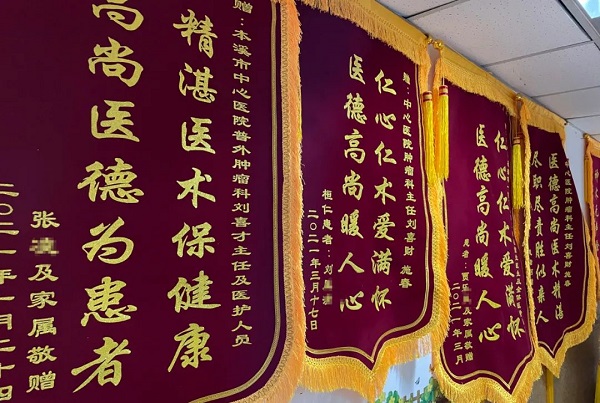 赠：本溪市中心医院普外肿瘤科刘喜才主任及医护人员
精湛医术保健康
高尚医德为患者
张 及家属敬赠
二〇二一年一月二十四
赠：中心医院肿瘤科主任刘喜财 施春
仁心仁术爱满怀
医德高尚暖人心
桓仁患者：刘
二〇二一年三月十七日
仁心仁术爱满怀
医德高尚暖人心
患者： 及家属敬赠
二〇二一年三月
中心医院肿瘤科主任刘喜财 施春
医德高尚医术精湛
尽职尽责胜似亲人